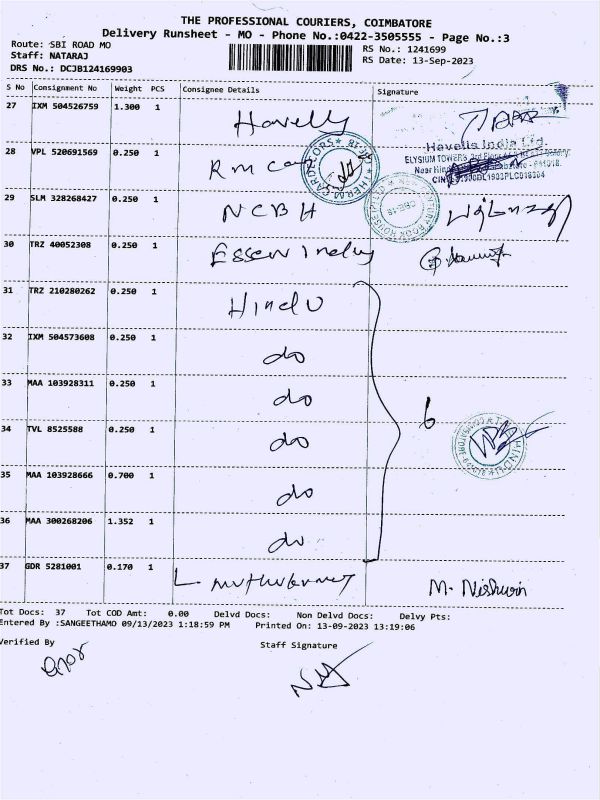 THE PROFESSIONAL COURIERS, COIMBATORE
Delivery Runsheet - MO - Phone No.:0422-3505555 - Page No.:3
Route: SBI ROAD MO
Staff: NATARAJ
DRS No.: DCJB124169903
RS No.: 1241699
RS Date: 13-Sep-2023
S No Consignment No Weight PCS Consignee Details Signature
27 IXM 504526759 1.300 1 Havells
Havells India Ltd.
28 VPL 520691569 0.250 1 Rm
ELYSIUM TOWERS
29 SLM 328268427 0.250 1 NCBH
30 TRZ 40052308 0.250 1 Essen
31 TRZ 210280262 0.250 1 Hindu
32 IXM 504573608 0.250 1 do
33 MAA 103928311 0.250 1 do
6
34 TVL 8525588 0.250 1 do
35 MAA 103928666 0.700 1 do
36 MAA 300268206 1.352 1 do
37 GDR 5281001 0.170 1
M. Nishwin
Tot Docs: 37 Tot COD Amt: 0.00 Delvd Docs: Non Delvd Docs: Delvy Pts:
Entered By :SANGEETHAMO 09/13/2023 1:18:59 PM Printed On: 13-09-2023 13:19:06
Verified By Staff Signature